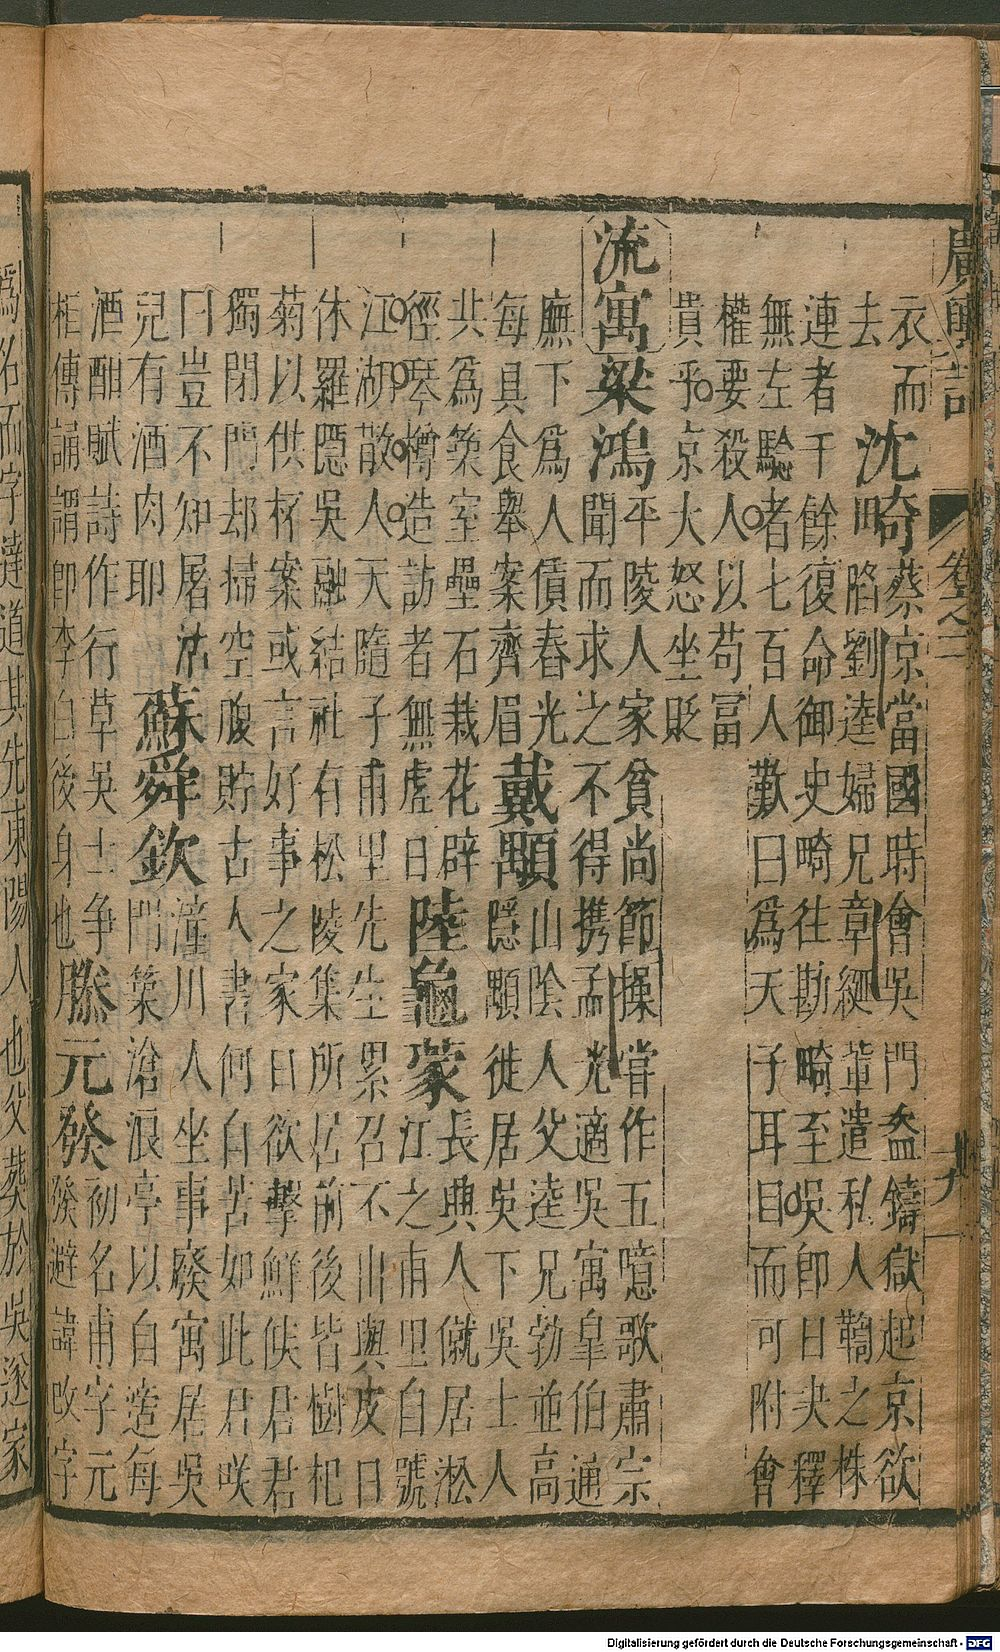 廣輿記 卷之二 十九
衣而
去
沈畸
蔡京當國時會吳門盗鑄獄起京欲
陷劉逵婦兄章綖輩遣私人鞫之株
連者千餘復命御史畸往勘畸至吳即日夬釋
無左驗者七百人歎曰爲天子耳目而可附會
權要殺人以苟冨
貴乎京大怒坐貶
流寓
梁鴻
平陵人家貧尚節操嘗作五噫歌肅宗
聞而求之不得携孟光適吳寓臯伯通
廡下爲人賃舂光
每具食舉案齊眉
戴顒
山陰人父逵兄勃並高
隱顒徙居吳下吳士人
共爲築室壘石栽花辟
徑琴樽造訪者無虗日
陸龜蒙
長興人僦居淞
江之甫里自號
江湖散人天隨子甫里先生累召不出與皮日
休羅隱吳融結社有松陵集所居前後皆樹杞
菊以供杯案或言好事之家日欲擊鮮候君君
獨閉門却掃空腹貯古人書何自苦如此君咲
曰豈不知屠沽
兒有酒肉耶
蘇舜欽
潼川人坐事廢寓居吳
門築滄浪亭以自適每
酒酣賦詩作行草吳士争
柜傳誦謂即李白後身也
滕元發
初名甫字元
發避諱改字
爲名而字達道其先東陽人也父葬於吳遂家
Digitalisierung gefördert durch die Deutsche Forschungsgemeinschaft - DFG